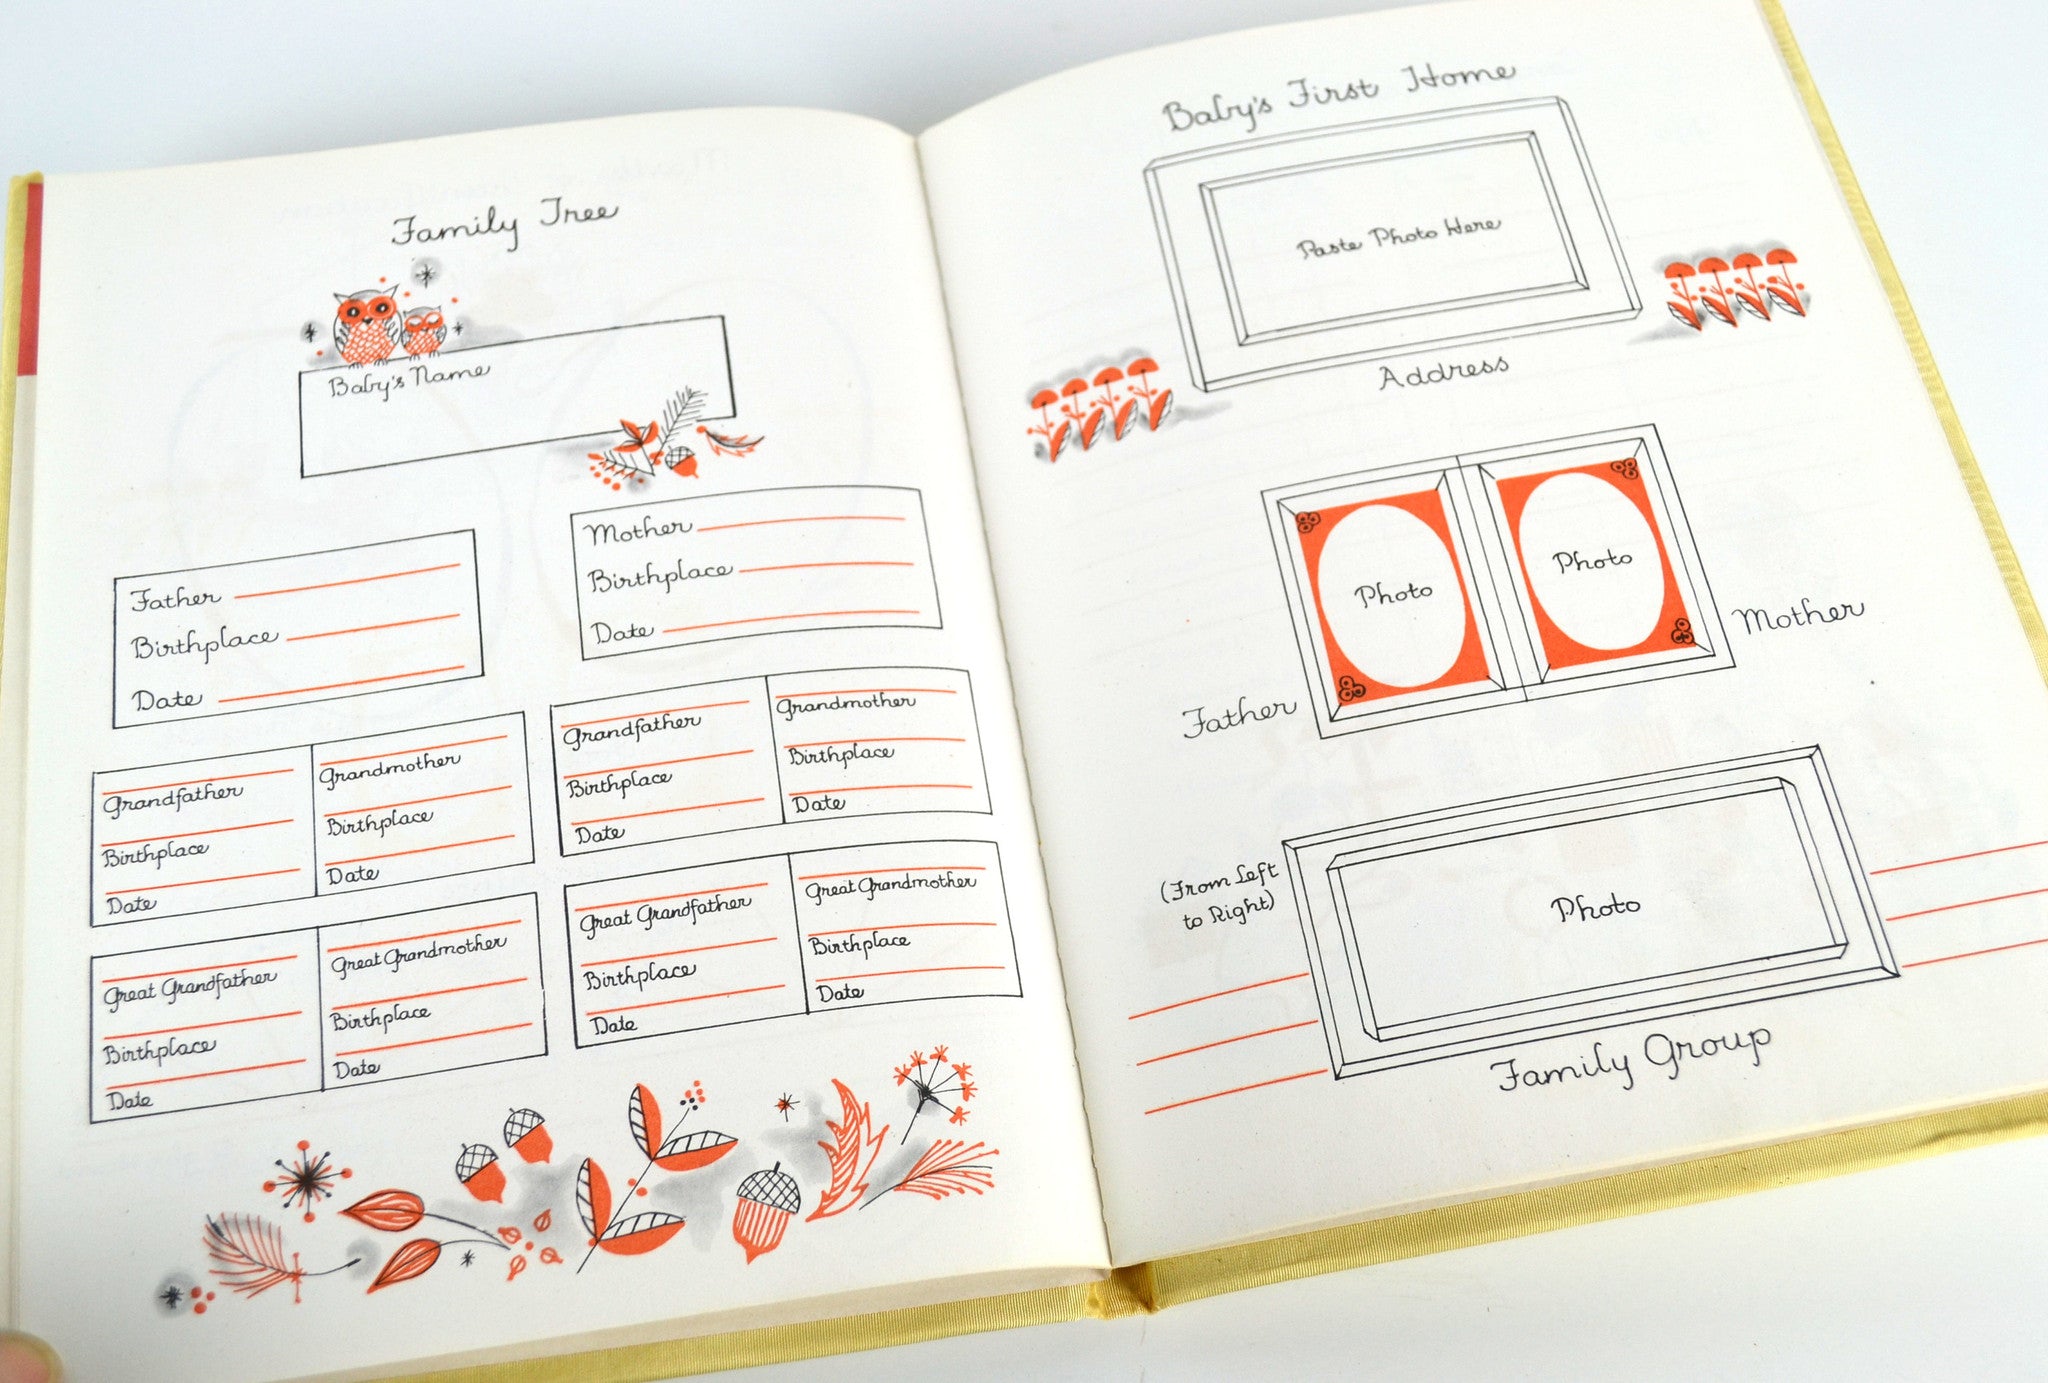 Family Tree
Baby's Name
Father
Birthplace
Date
Mother
Birthplace
Date
Grandfather
Birthplace
Date
Grandmother
Birthplace
Date
Grandfather
Birthplace
Date
Grandmother
Birthplace
Date
Great Grandfather
Birthplace
Date
Great Grandmother
Birthplace
Date
Great Grandfather
Birthplace
Date
Great Grandmother
Birthplace
Date
Baby's First Home
Paste Photo Here
Address
Photo
Photo
Father
Mother
(From Left
to Right)
Photo
Family Group